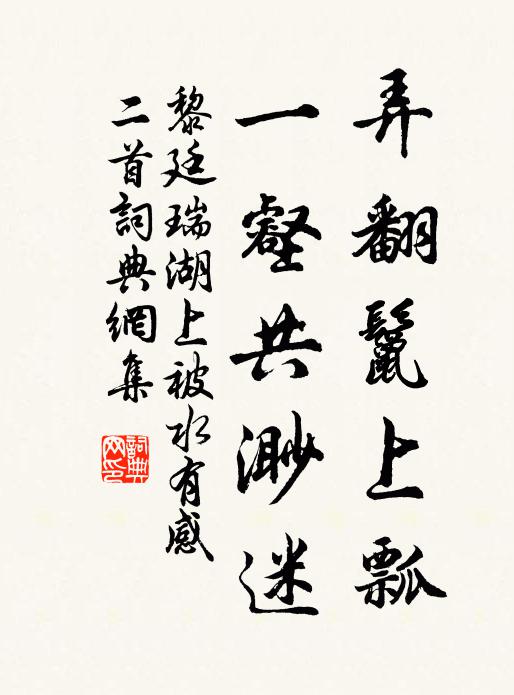 弄翻鬣上瓢
一壑共渺迷
黎廷瑞湖上被水有感
二首詞典網集
詞典
网印